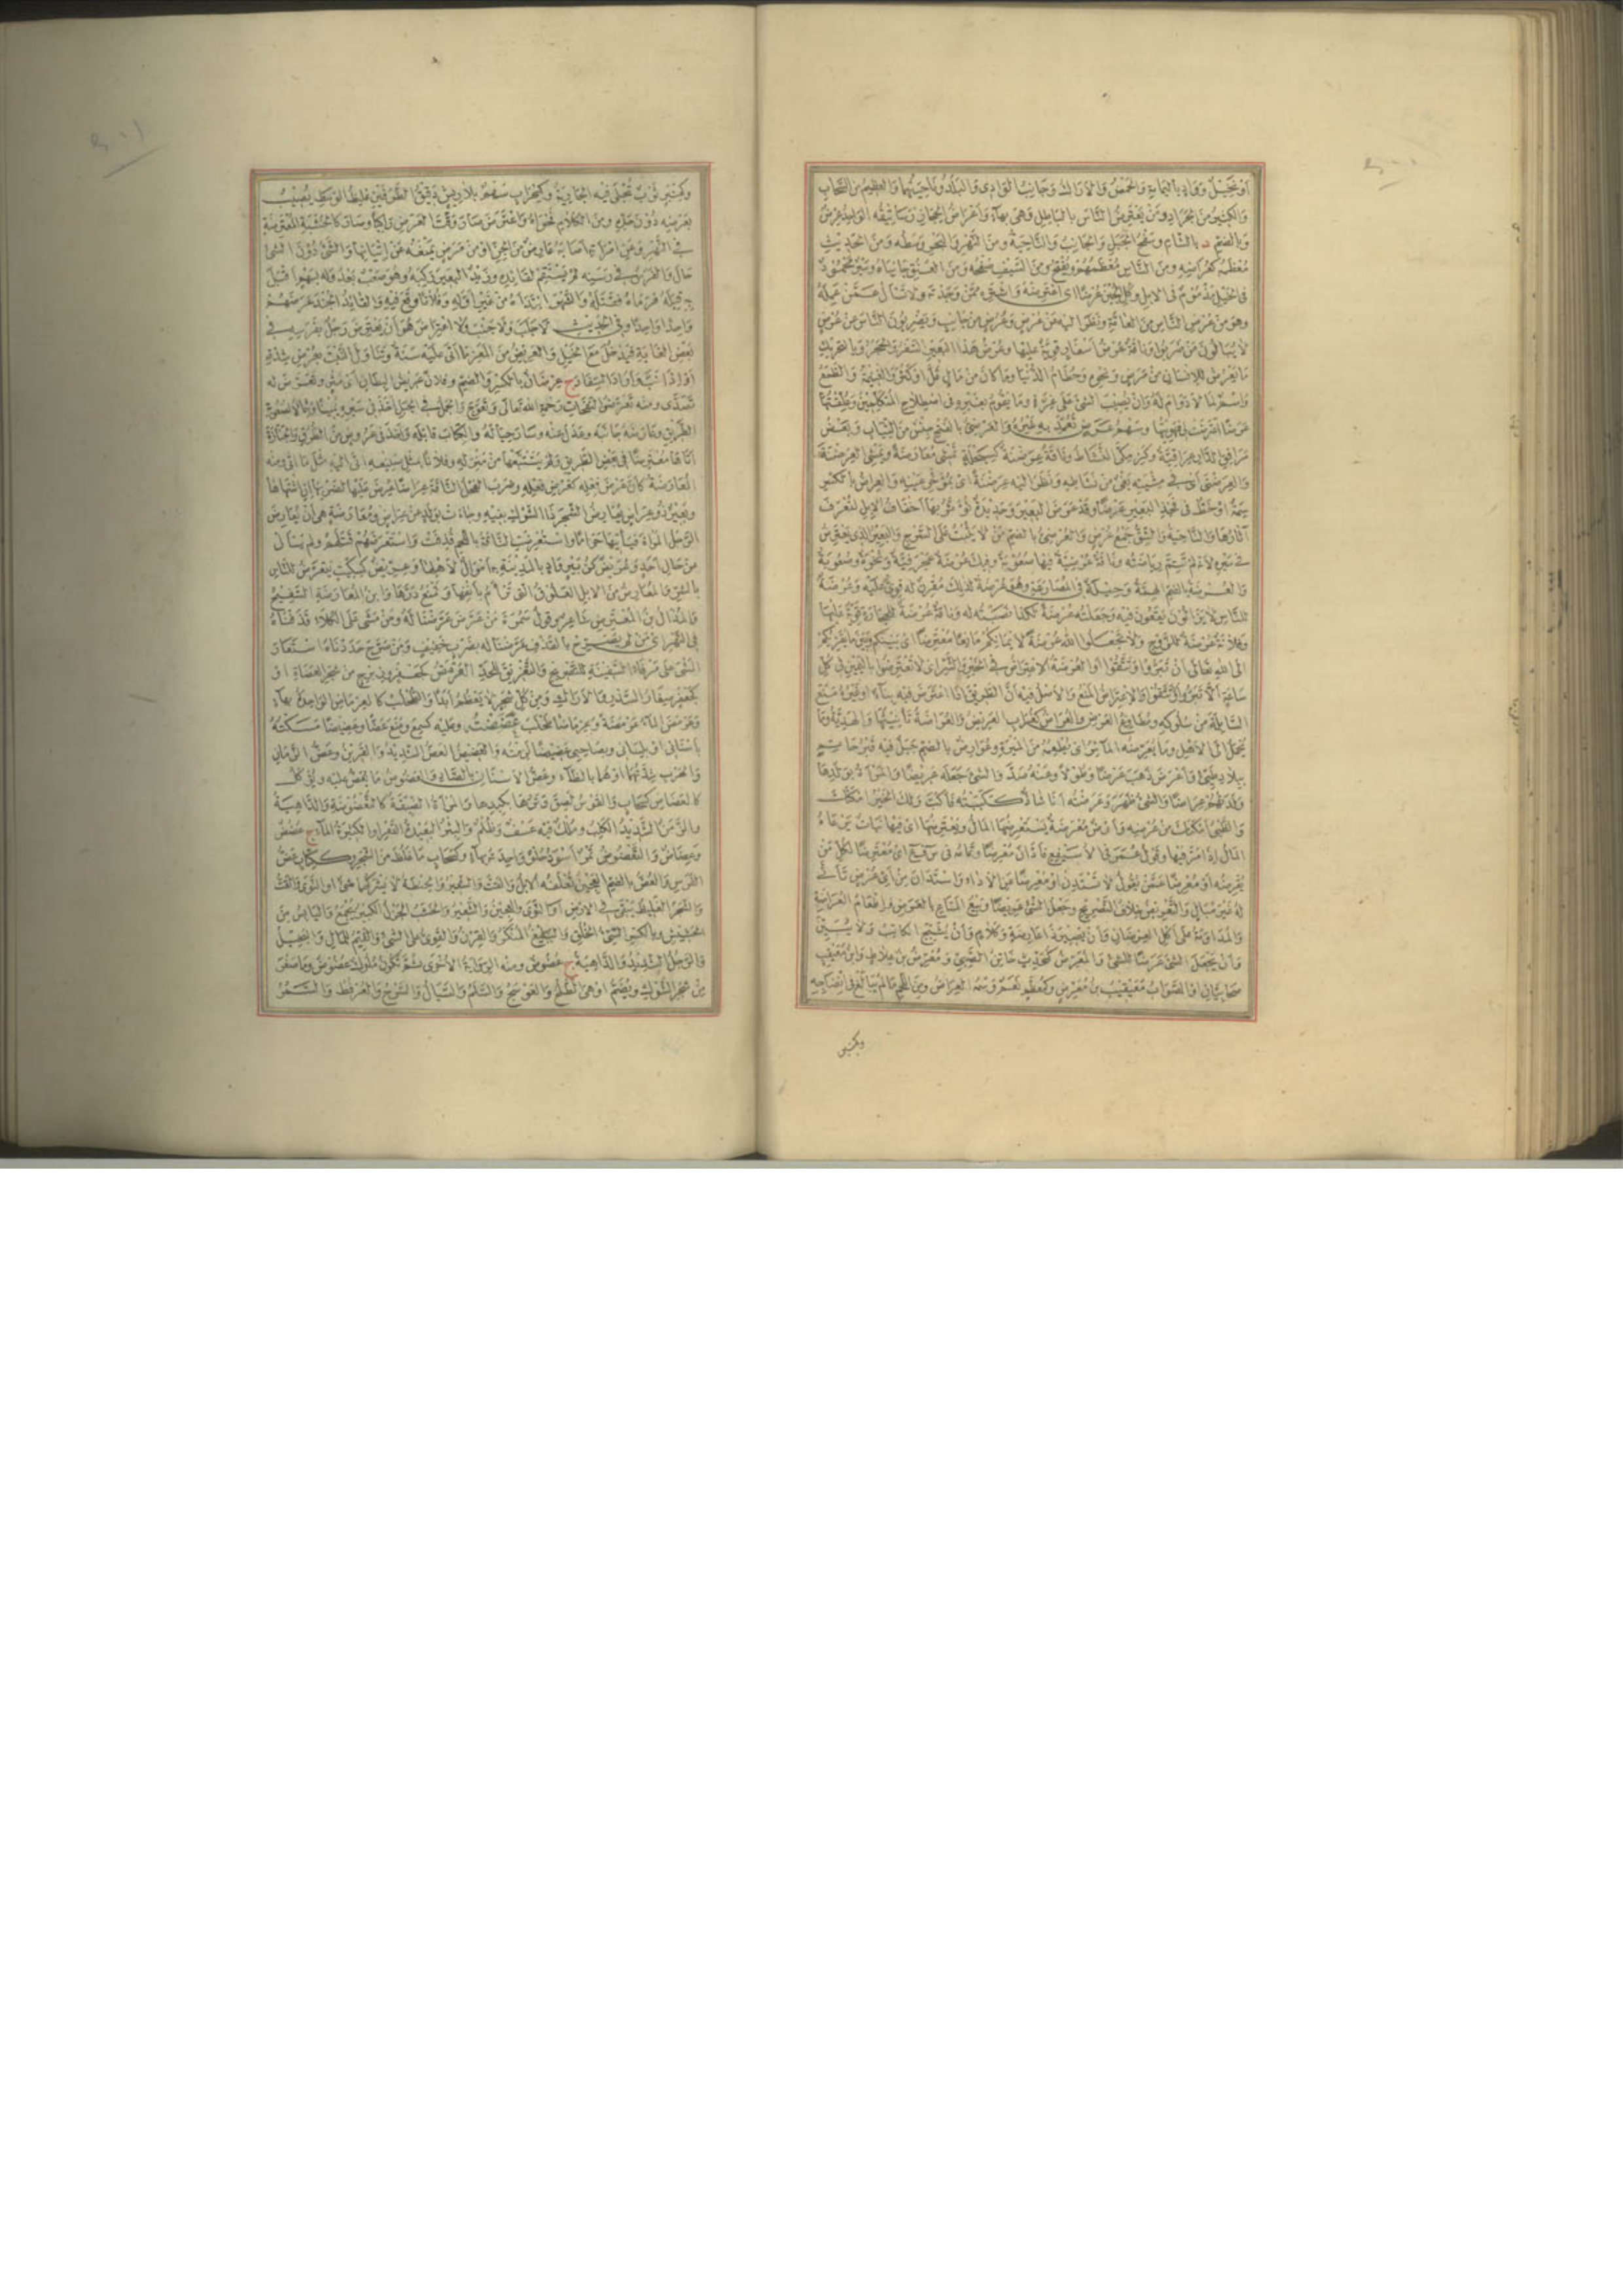 أو نخيل وواد باليمامة والحمض والأراك وجانب الوادى والبلد وناحيتهما والعظيم من السحاب
والكثير من الجراد ومن يعترض الناس بالباطل وهى بهاء وأعراض الحجاز رساتيقه الواحد عرض
وبالضم د بالشام وسفح الجبل والجانب والناحية ومن النهر والبحر وسطه ومن الحديث
معظمه كعراضه ومن الناس معظمهم ويفتح ومن السيف صفحه ومن العنق جانباه وسير محمود
فى الخيل مذموم فى الابل وكل الجبن عرضا اى اعترضه واشتره ممن وجدته ولا تسأل عمن عمله
وهو من عرض الناس من العامة ونظر اليه عن عرض وعرض من جانب ويضربون الناس عن عرض
لا يبالون من ضربوا وناقة عرض أسفار قوية عليها وعرض هذا البعير السفر والحجر وبالتحريك
ما يعرض للإنسان من مرض ونحوه وحطام الدنيا وما كان من مال قل او كثر والغنيمة والطمع
واسم لما لا دوام له وأن يصيب الشئ على غرة وما يقوم بغيره فى اصطلاح المتكلمين وعلقتها
عرضا اعترضت لى فهويتها وسهم عرض تعمد به غيره والعرضى بالفتح جنس من الثياب وبعض
مرافق الدار عراقية وكزمكى النشاط وناقة عرضنة كسبحلة تمشى معارضة ويمشى العرضنة
والعرضنى أى فى مشيته بغى من نشاطه ونظر اليه عرضنة اى بمؤخر عينه والعراض بالكسر
سمة او خط فى فخذ البعير عرضا وقد عرض البعير وحديدة تؤثر بها أخفاف الإبل لتعرف
آثارها والناحية والشق جمع عرض والعرضى بالضم من لا يثبت على السرج والبعير الذى يعترض
فى سيره لأنه لم تتم رياضته وناقة عرضية فيها صعوبة وفيك عرضية عجرفية ونخوة وصعوبة
والعرضة بالضم الهمة وحيلة فى المصارعة وهو عرضة لذلك مقرن له قوى عليه وعرضة
للناس لا يزالون يقعون فيه وجعلته عرضة لكذا نصبته له وناقة عرضة للحجارة قوية عليها
وفلانة عرضة للزوج ولا تجعلوا الله عرضة لايمانكم مانعا معترضا اى بينكم وبين ما يقربكم
الى الله تعالى أن تبروا وتتقوا او العرضة الاعتراض فى الخير والشر اى لا تعترضوا باليمين فى كل
ساعة ألا تبروا ولا تتقوا والاعتراض المنع والأصل فيه أن الطريق اذا اعترض فيه بناء او غيره منع
السابلة من سلوكه ومطاوع العرض والعراض كغراب العريض والعراضة تأنيثها والهدية وما
يحمل الى الأهل وما يعرضه المائر اى يطعمه من الميرة وعوارض بالضم جبل فيه قبر حاتم
ببلاد طيئ وأعرض ذهب عرضا وطولا وعنه صد والشئ جعله عريضا والمرأة بولدها
ولدتهم عراضا والشئ ظهر وعرضته أنا لما أكتبته فأكب ولك الخير أمكنك
والظبى أمكنك من عرضه وأرض معرضة يستعرضها المال ويعترضها اى فيها نبات يرعاه
المال إذا مر فيها وقول عمر فى الأسيفع فادان معرضا وتمامه فى س ف ع اى معترضا لكل من
يقرضه او معرضا عمن يقول لا تستدن او معرضا عن الأداء او استدان من أى عرض تأتى
له غير مبال والتعريض خلاف التصريح وجعل الشئ عريضا وبيع المتاع بالعرض وإطعام العراضة
والمداومة على أكل العرضان وأن يصير ذا عارضة وكلام وأن يثبج الكاتب ولا يبين
وأن يجعل الشئ عرضا للشئ والمعرض كمحدث خاتن الصبى ومعرض بن علاط وابن معيقيب
صحابيان او الصواب معيقيب بن معرض وكمعظم نعم وسمه العراض ومن اللحم ما لم يبالغ فى انضاجه
وكمنبر
وكمنبر ثوب تجلى فيه الجارية وكمحراب سهم بلا ريش دقيق الطرفين غليظ الوسط يصيب
بعرضه دون حده ومن الكلام فحواه واعترض صار وقت العرض راكبا وصار كالخشبة المعترضة
فى النهر وعن امرأته أصابه عارض من الجن او من مرض يمنعه عن إتيانها والشئ دون الشئ
حال والفرس فى رسنه لم يستقم لقائده وزيد البعير ركبه وهو صعب بعد وله بسهم أقبل
به قبله فرماه فقتله والشهر ابتدأه من غير أوله وفلانا وقع فيه والقائد الجند عرضهم
واحدا واحدا وفى الحديث لا جلب ولا جنب ولا اعتراض هو أن يعترض رجل بفرسه فى
بعض الغاية فيدخل مع الخيل والعريض من المعز ما أتى عليه سنة وتناول النبت بعرض شدقه
أو إذا نب وأراد السفاد ج عرضان بالكسر والضم وفلان عريض البطان أى مثر وتعرض له
تصدى ومنه تعرضوا لنفحات رحمة الله تعالى وتعوج والجمل فى الجبل أخذ فى سيره يمينا وشمالا لصعوبة
الطريق وعارضه جانبه وعدل عنه وسار حياله والكتاب قابله وأخذ فى عروض من الطريق والجنازة
أتاها معترضا فى بعض الطريق ولم يتبعها من منزله وفلانا بمثل صنيعه اتى اليه مثل ما اتى ومنه
المعارضة كأن عرض فعله كعرض فعله وضرب الفحل الناقة عراضا عرض عليها ليضربها إن اشتهاها
وبعير ذو عراض يعارض الشجر ذا الشوك بفيه وجاءت بولد عن عراض ومعارضة هى أن يعارض
الرجل المرأة فيأتيها حراما واستعرضت الناقة باللحم قذفت واستعرضهم قتلهم ولم يسأل
عن حال أحد وعريض كزبير واد بالمدينة به أموال لأهلها وعريض كسكيت يتعرض للناس
بالشر والمعارض من الابل العلوق التى ترأم بأنفها وتمنع درها وابن المعارضة السفيح
والمذال بن المعترض شاعر وقول سمرة من عرض عرضنا له ومن مشى على الكلاء قذفناه
فى النهر اى من لم يصرح بالقذف عرضنا له بضرب خفيف ومن صرح حددناه استعار
المشى على مرفأ السفينة للتصريح والتغريق للحد العرمض كجعفر وزبرج من شجر العضاه او
كجعفر صغار السدر والأراك ومن كل شجر لا يعظم أبدا والطحلب كالعرماض الواحدة بهاء
وعرمض الماء عرمضة وعرماضا طحلب عضضته وعليه كسمع ومنع عضا وعضيضا مسكته
بأسنانى او بلسانى وبصاحبى عضيضا لزمته والعضيض العض الشديد والقرين وعض الزمان
والحرب شدتهما او هما بالظاء وعض الأسنان بالضاد والعضوض ما يعض عليه ويؤكل
كالعضاض كسحاب والقوس لصق وترها بكبدها والمرأة الضيقة كالتعضوضة والداهية
والزمن الشديد الكلب وملك فيه عسف وظلم والبئر البعيدة القعر او الكثيرة الماء ج عضض
وعضاض والتعضوض تمر أسود حلو واحده بهاء وكسحاب ما غلظ من الشجر وككتاب عض
الفرس والعض بالضم العجين تعلفه الابل والقت والشعير والحنطة لا يشركهما شئ او النوى والقت
والشجر الغليظ يبقى فى الارض او النوى والعجين والشعير والخشب الجزل الكثير يجمع واليابس من
الحشيش وبالكسر السيئ الخلق والبليغ المنكر والقرن والقوى على الشئ والقيم للمال والبخيل
والرجل الشديد والداهية ج عضوض ومنه الرواية الأخرى ثم تكون ملوك عضوض وما صغر
من شجر الشوك ويضم او هى الطلح والعوسج والسلم والسيال والسرح والعرفط والسمر